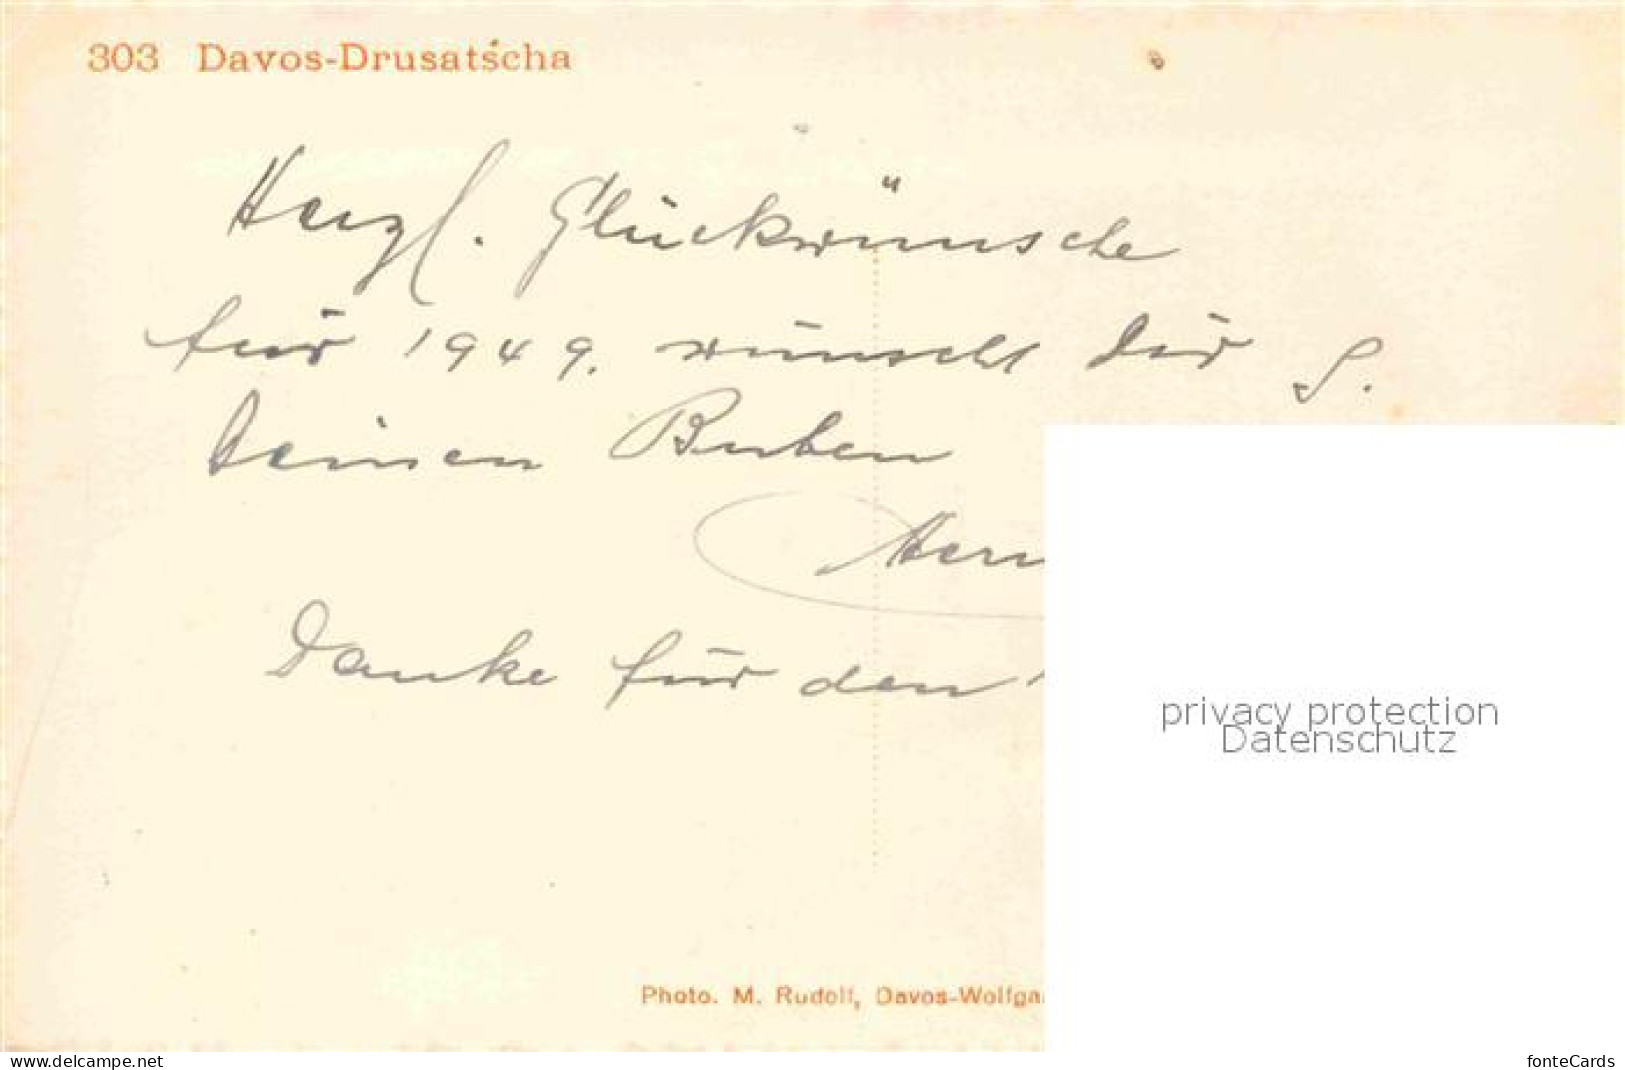 303 Davos-Drusatscha
Herzl. Glückwünsche
für 1949. wünscht Dir &.
Deinen Buben
Danke für den
Photo. M. Rudolf, Davos-Wolfga
privacy protection
Datenschutz
www.delcampe.net
fonteCards